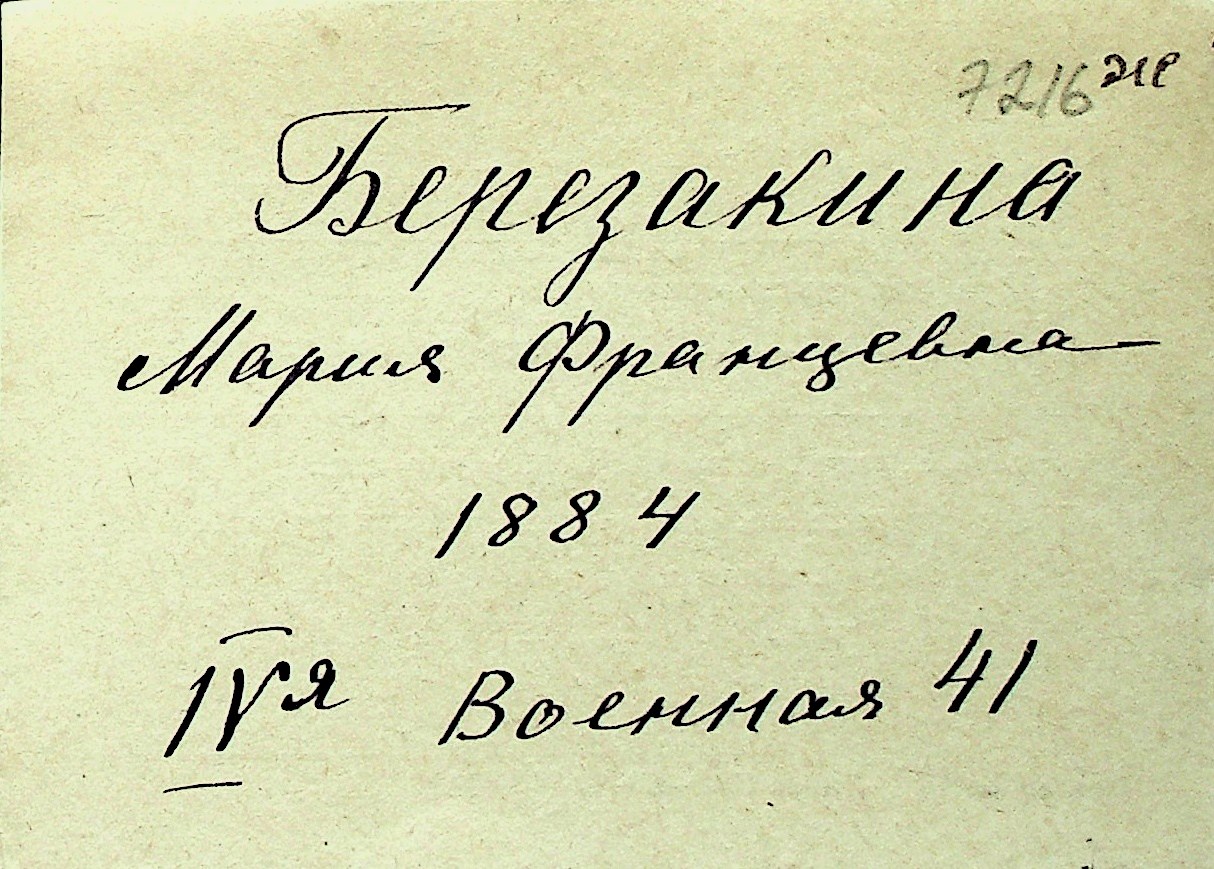 7216 же
Березакина
Мария Францевна
1884
IVя Военная 41